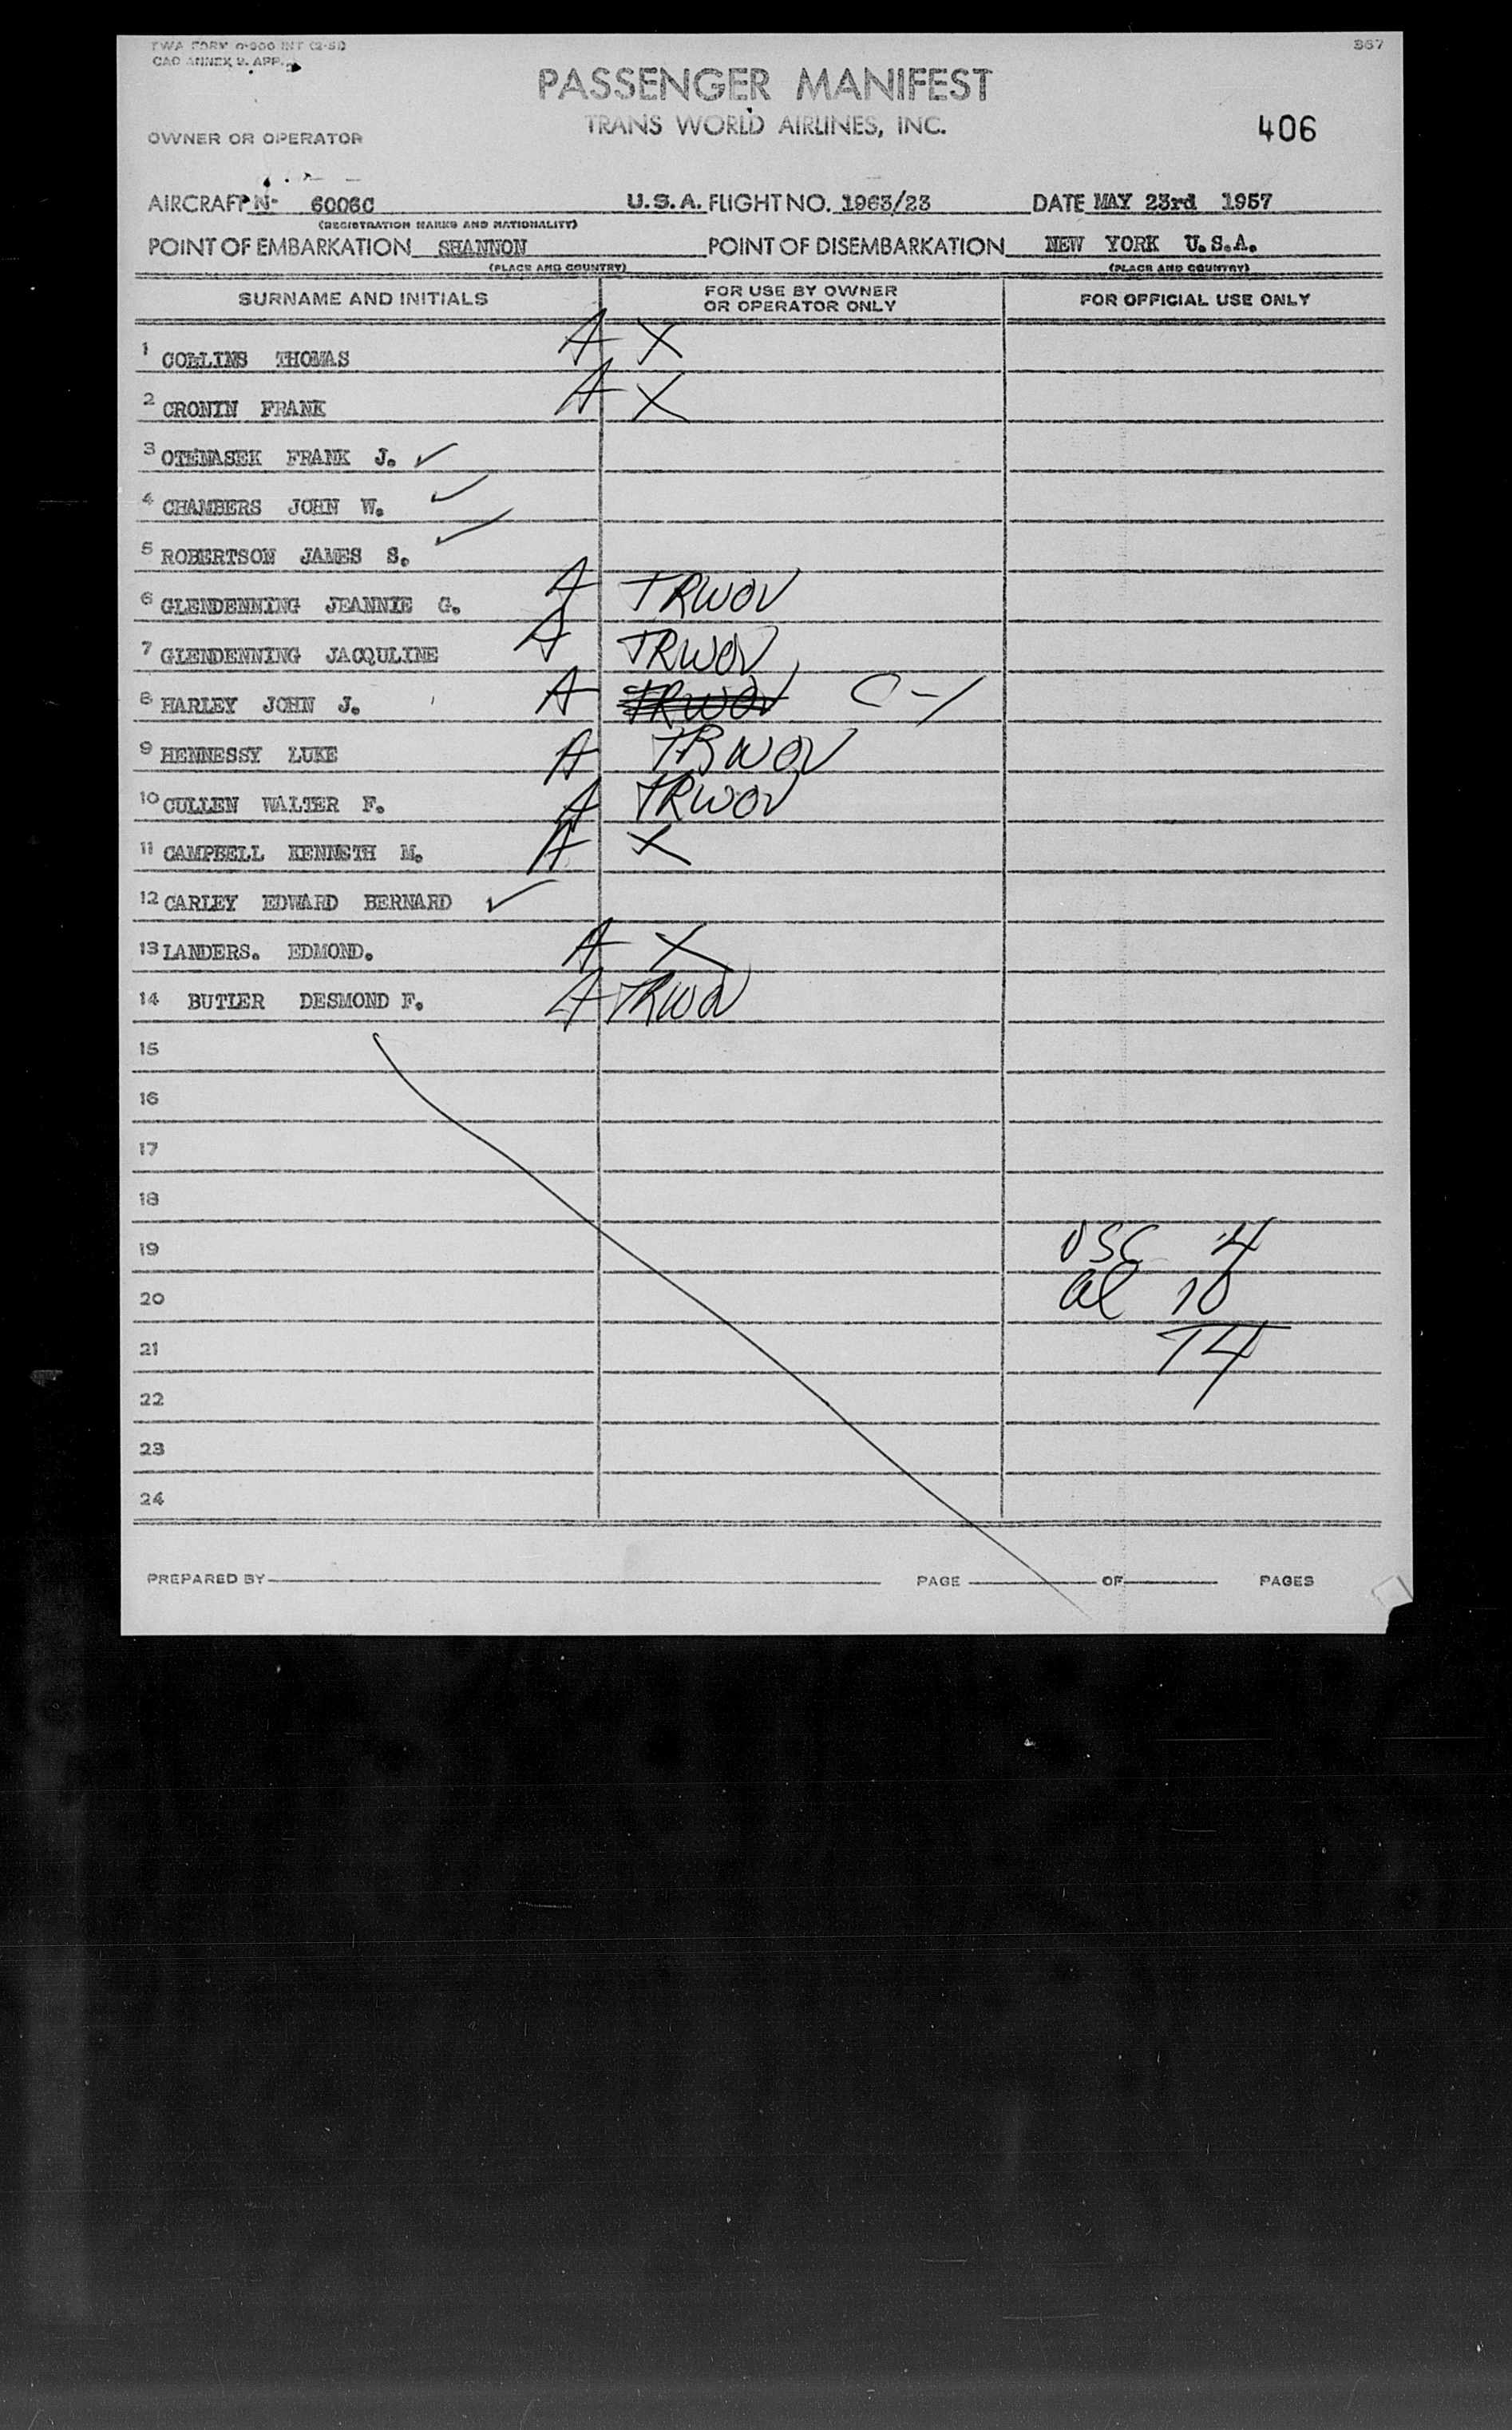 TWA FORM 0-300 INT (2-51)
367
CAO ANNEX 9. APP.
PASSENGER MANIFEST
TRANS WORLD AIRLINES, INC.
406
OWNER OR OPERATOR
AIRCRAFT N- 6006C U.S.A. FLIGHT NO. 1963/23 DATE MAY 23rd 1957
(REGISTRATION MARKS AND NATIONALITY)
POINT OF EMBARKATION SHANNON POINT OF DISEMBARKATION NEW YORK U.S.A.
(PLACE AND COUNTRY) (PLACE AND COUNTRY)
SURNAME AND INITIALS FOR USE BY OWNER OR OPERATOR ONLY FOR OFFICIAL USE ONLY
1 COLLINS THOMAS A X
2 CRONIN FRANK A X
3 OTENASEK FRANK J. ✓
4 CHAMBERS JOHN W. ✓
5 ROBERTSON JAMES S. ✓
6 GLENDENNING JEANNIE G. A TRWOV
7 GLENDENNING JACQULINE A TRWOV
8 HARLEY JOHN J. A TRWOV C-1
9 HENNESSY LUKE A TRWOV
10 CULLEN WALTER F. A TRWOV
11 CAMPBELL KENNETH M. A X
12 CARLEY EDWARD BERNARD ✓
13 LANDERS. EDMOND. A X
14 BUTLER DESMOND F. A TRWOV
15
16
17
18
19 USC 4
20 al 10
21 14
22
23
24
PREPARED BY PAGE OF PAGES